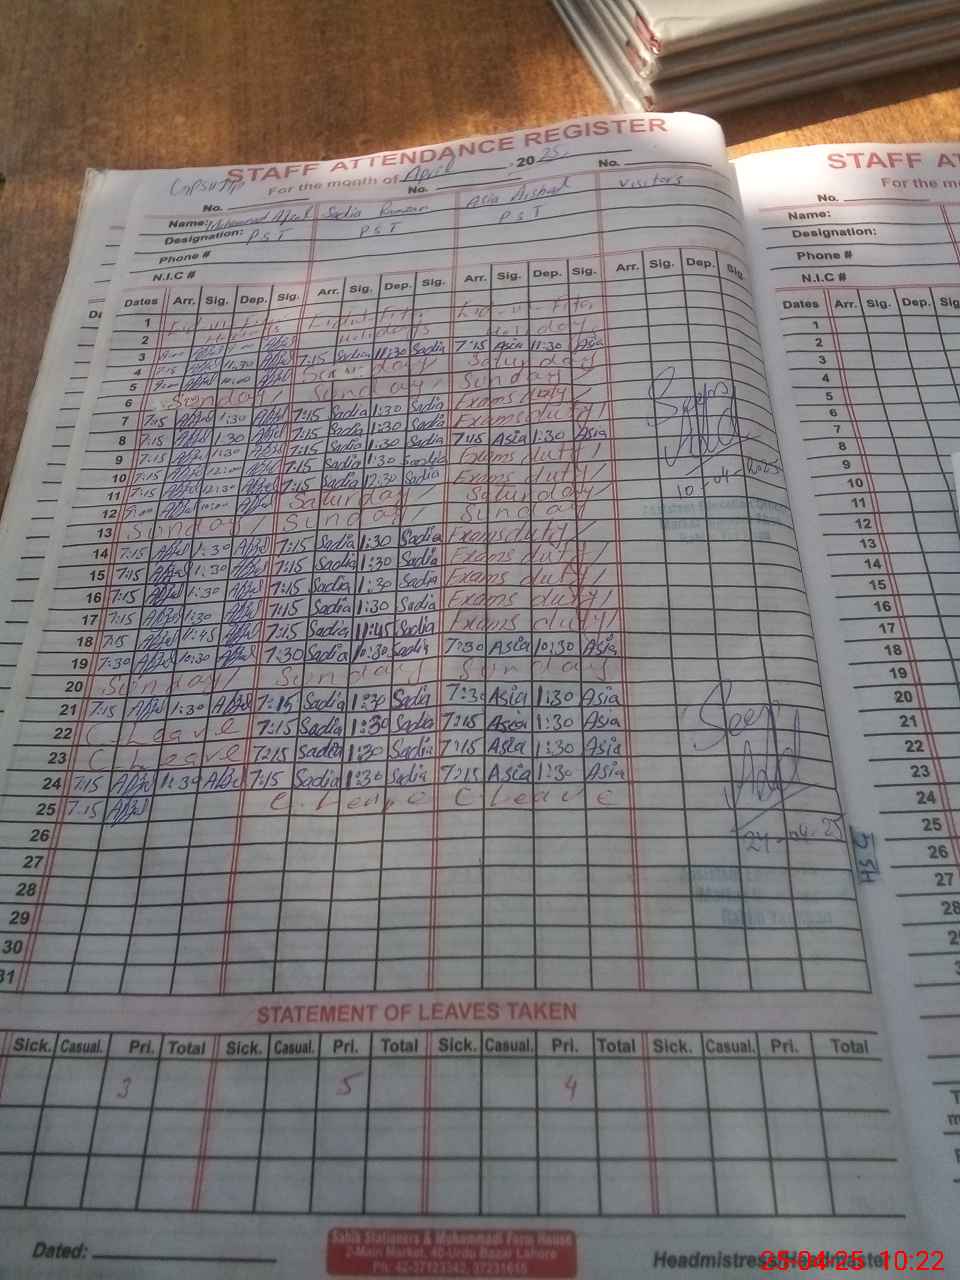 STAFF ATTENDANCE REGISTER
For the month of April, 20 25.
No. No. No.
Name: Muhammad Afzal Sadia Ramzan Asia Arshad Visitors
Designation: PST PST PST
Phone #
N.I.C #
Dates Arr. Sig. Dep. Sig. Arr. Sig. Dep. Sig. Arr. Sig. Dep. Sig. Arr. Sig. Dep. Sig.
1
2
3
4 7:15 Sadia 11:30 Sadia 7:15 Asia 11:30 Asia
5 Saturday
6 Sunday Sunday Sunday
7 7:15 Afzal 1:30 Afzal 7:15 Sadia 1:30 Sadia Exams duty
8 7:15 Afzal 1:30 Afzal 7:15 Sadia 1:30 Sadia Exams duty
9 7:15 Afzal 1:30 Afzal 7:15 Sadia 1:30 Sadia 7:15 Asia 1:30 Asia
10 7:15 Afzal Afzal 7:15 Sadia 1:30 Sadia Exams duty
11 7:15 Afzal 12:30 Afzal 7:15 Sadia 12:30 Sadia Exams duty
12 Afzal Afzal Saturday Saturday
13 Sunday Sunday Sunday
14 7:15 Afzal 1:30 Afzal 7:15 Sadia 1:30 Sadia Exams duty
15 7:15 Afzal 1:30 Afzal 7:15 Sadia 1:30 Sadia Exams duty
16 7:15 Afzal 1:30 Afzal 7:15 Sadia 1:30 Sadia Exams duty
17 7:15 Afzal 1:30 Afzal 7:15 Sadia 1:30 Sadia Exams duty
18 7:15 Afzal 11:45 Afzal 7:15 Sadia 11:45 Sadia Exams duty
19 7:30 Afzal 10:30 Afzal 7:30 Sadia 10:30 Sadia 7:30 Asia 10:30 Asia
20 Sunday Sunday Sunday
21 7:15 Afzal 1:30 Afzal 7:15 Sadia 1:30 Sadia 7:30 Asia 1:30 Asia
22 C. Leave 7:15 Sadia 1:30 Sadia 7:15 Asia 1:30 Asia
23 C. Leave 7:15 Sadia 1:30 Sadia 7:15 Asia 1:30 Asia
24 7:15 Afzal 1:30 Afzal 7:15 Sadia 1:30 Sadia 7:15 Asia 1:30 Asia
25 7:15 Afzal C. Leave C. Leave
26
27
28
29
30
31
10-04-2025
Seen
24-04-25
STATEMENT OF LEAVES TAKEN
Sick. Casual. Pri. Total Sick. Casual. Pri. Total Sick. Casual. Pri. Total Sick. Casual. Pri. Total
3 5 4
Dated:
Sabih Stationers & Mohammadi Form House
2-Main Market, 40-Urdu Bazar Lahore
Ph: 42-37123342, 37231615
Headmistress/Headmaster
STAFF AT
For the m
No.
Name:
Designation:
Phone #
N.I.C #
Dates Arr. Sig. Dep. Sig
1
2
3
4
5
6
7
8
9
10
11
12
13
14
15
16
17
18
19
20
21
22
23
24
25
26
27
28
25-04-25 10:22